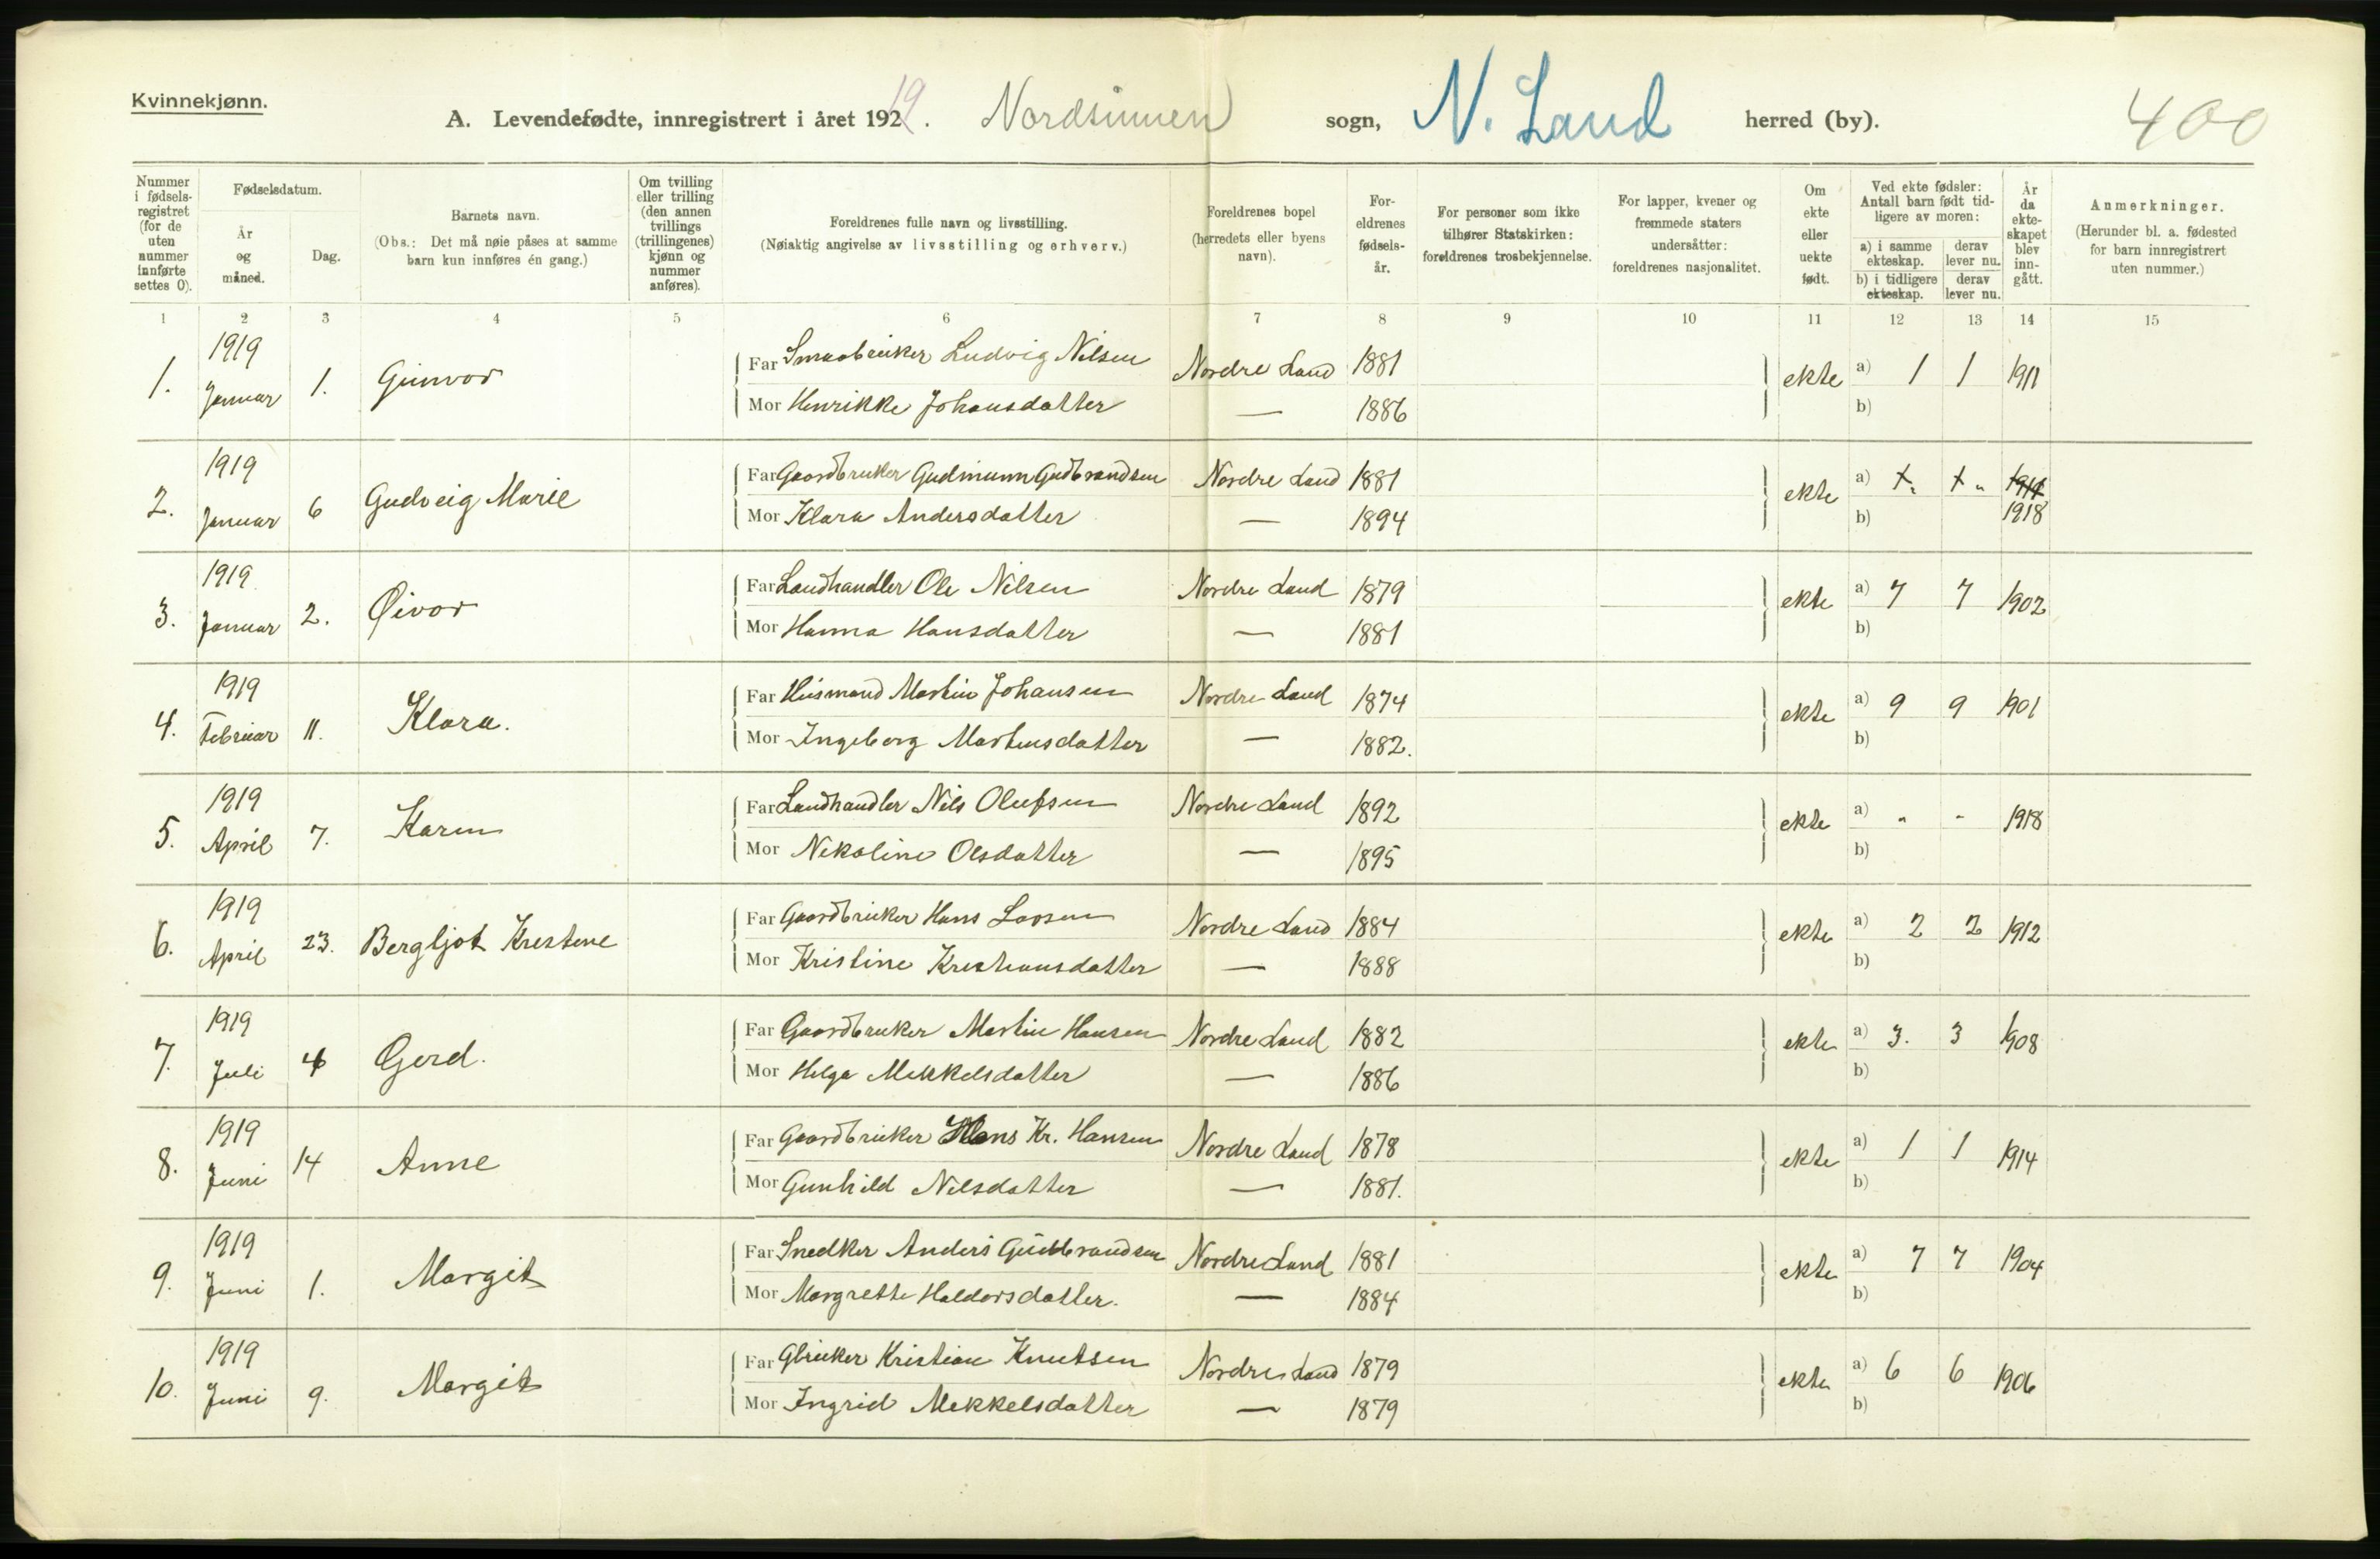 Kvinnekjønn.
A. Levendefødte, innregistrert i året 1919. Nordsinnen sogn, N. Land herred (by). 400
Nummer i fødselsregistret (for de uten nummer innførte settes 0).
Fødselsdatum.
År og måned.
Dag.
Barnets navn.
(Obs.: Det må nøie påses at samme barn kun innføres én gang.)
Om tvilling eller trilling (den annen tvillings (trillingenes) kjønn og nummer anføres).
Foreldrenes fulle navn og livsstilling.
(Nøiaktig angivelse av livsstilling og erhverv.)
Foreldrenes bopel (herredets eller byens navn).
Foreldrenes fødselsår.
For personer som ikke tilhører Statskirken: foreldrenes trosbekjennelse.
For lapper, kvener og fremmede staters undersåtter: foreldrenes nasjonalitet.
Om ekte eller uekte født.
Ved ekte fødsler: Antall barn født tidligere av moren:
a) i samme ekteskap. derav lever nu.
b) i tidligere ekteskap. derav lever nu.
År da ekteskapet blev inngått.
Anmerkninger.
(Herunder bl. a. fødested for barn innregistrert uten nummer.)
1 2 3 4 5 6 7 8 9 10 11 12 13 14 15
1. 1919 Januar 1. Gunvor Far Smaabruker Ludvig Nilsen Nordre Land 1881 ekte a) 1 1 1911
Mor Henrikke Johansdatter — 1886 b)
2. 1919 Januar 6 Gudveig Marie Far Gaardbruker Gudmunn Gudbrandsen Nordre Land 1881 ekte a) " " 1918
Mor Klara Andersdatter — 1894 b)
3. 1919 Januar 2. Øivor Far Landhandler Ole Nilsen Nordre Land 1879 ekte a) 7 7 1902
Mor Hanna Hansdatter — 1881 b)
4. 1919 Februar 11. Klara. Far Husmand Martin Johansen Nordre Land 1874 ekte a) 9 9 1901
Mor Ingeborg Martinsdatter — 1882. b)
5. 1919 April 7. Karen Far Landhandler Nils Olufsen Nordre Land 1892 ekte a) " " 1918
Mor Nikoline Olsdatter — 1895 b)
6. 1919 April 23. Bergljot Kristine Far Gaardbruker Hans Larsen Nordre Land 1884 ekte a) 2 2 1912
Mor Kristine Kristiansdatter — 1888 b)
7. 1919 Juli 4 Gerd. Far Gaardbruker Martin Hansen Nordre Land 1882 ekte a) 3. 3 1908
Mor Helga Mikkelsdatter — 1886 b)
8. 1919 Juni 14 Anne Far Gaardbruker Hans Kr. Hansen Nordre Land 1878 ekte a) 1 1 1914
Mor Gunhild Nilsdatter — 1881. b)
9. 1919 Juni 1. Margit Far Snedker Anders Gudbrandsen Nordre Land 1881 ekte a) 7 7 1904
Mor Margrethe Haldorsdatter. — 1884 b)
10. 1919 Juni 9. Margit Far Gbruker Kristian Knutsen Nordre Land 1879 ekte a) 6 6 1906
Mor Ingrid Mekkelsdatter — 1879 b)